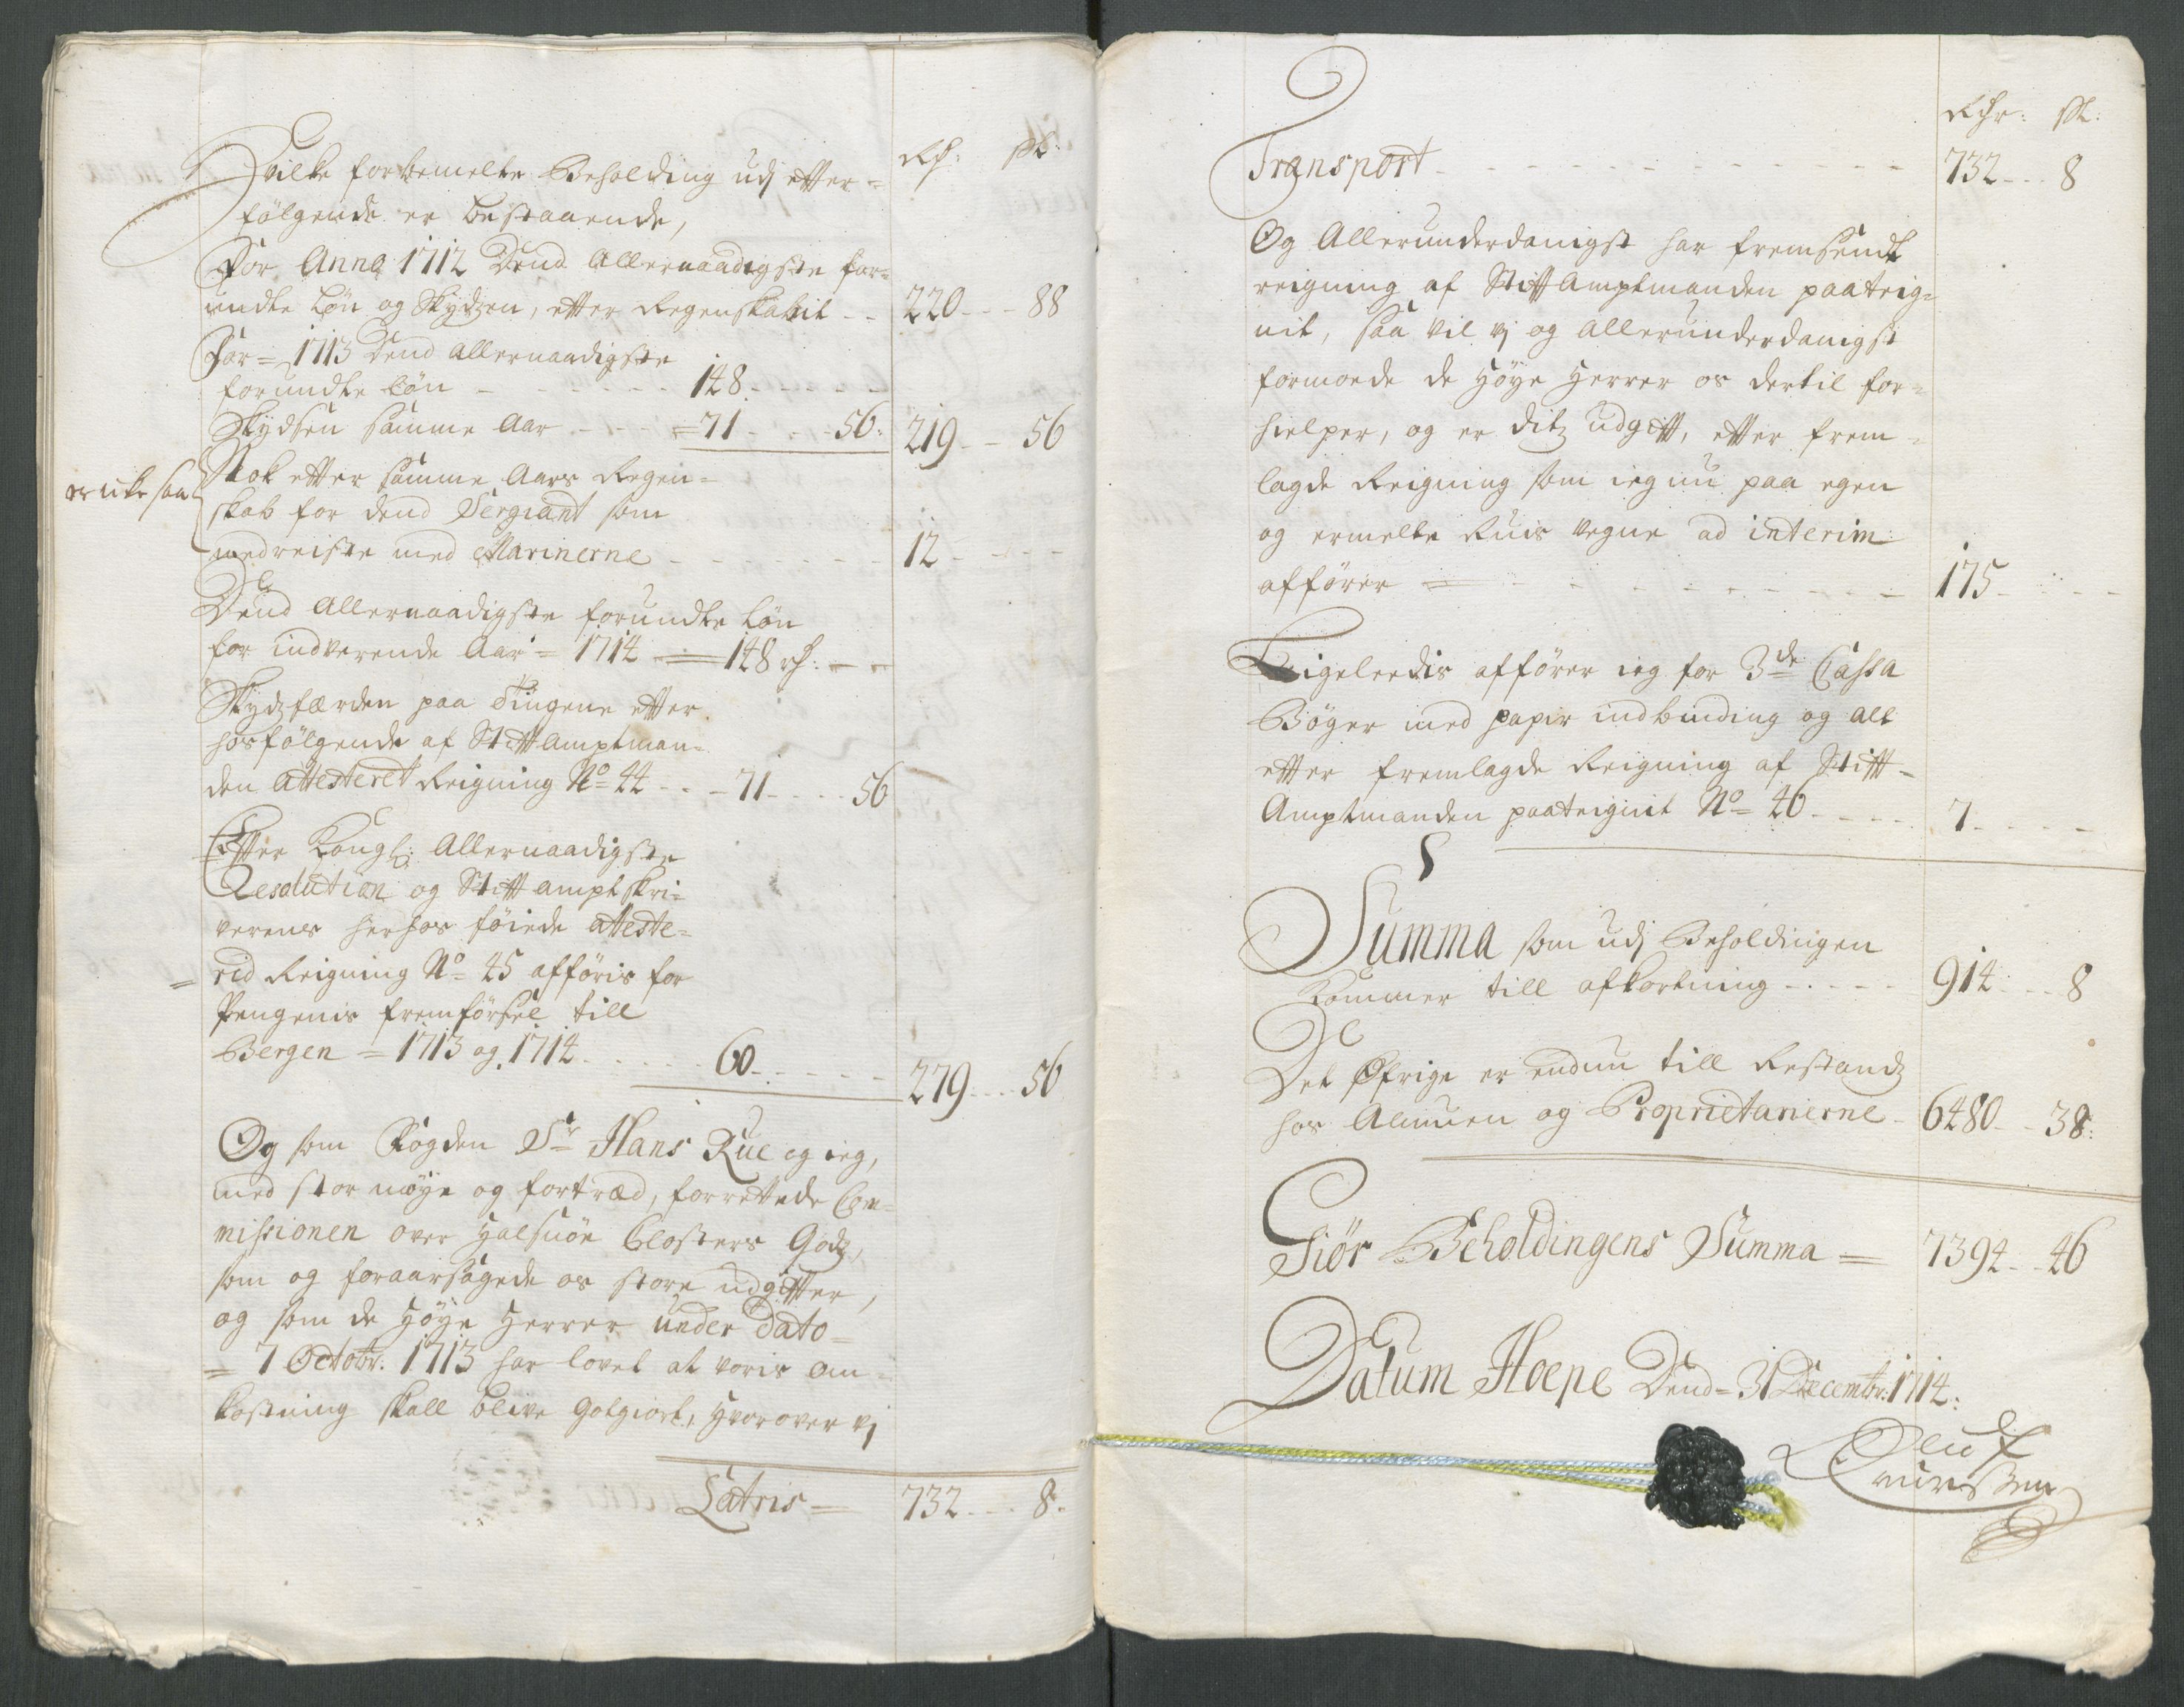 Rd: ſk:
Hvilke forbemelte Beholding udj effter=
følgende er bestaaende,
For Anno 1712 Dend Allernaadigste for=
undte Løn og Skydzen, effter Regenskabit - - 220 - - - 88
For = 1713 Dend allernaadigste
forundte Løn - - - - - - 148. - - - -
Skydsen samme Aar - - - - = 71 - - - 56: 219 - - 56
Nok effter samme Aars Regen=
er icke saa
skab for dend Sergiant som
medreiste med Marinerne - - - - - - - 12 - - - -
Dend Allernaadigste forundte Løn
for indverende Aar = 1714 = 148 rd: - -
Skydzfærden paa Tingene effter
hosfølgende af Stifftamptman=
den attesteret Reigning No= 44 - - - 71 - - - - 56
Effter Kongl: Allernaadigste
Resolution og Stifftamptskri=
verens herhos føiede atteste=
= rid Reigning No= 45 afføris for
Pengenis fremførsel till
Bergen = 1713 og 1714 - - - - 60 - - - - - 279 - - - 56
Og som Fogden Sr= Hans Rue og ieg,
med stor møye og fortræd, forrettede Com=
missionen over Halsnöe Closters Godz,
som og foraarsagede os store udgiffter,
og som de Høye Herrer under Dato =
= 7 Octobr: 1713 har lovet at voris om=
kostning skall blive Gotgiort, Hvorover vj
Latris = 732 - - - 8.
Rdr: ſk:
Transport - - - - - - - - - 732 - - - 8
Og Allerunderdanigst har fremsendt
reigning af Stifftamptmanden paateig=
nit, saa vil vj og allerunderdanigst
formoede de Høye Herrer os dertil for=
hielper, og er ditz udgifft, effter frem=
lagde Reigning som ieg nu paa egen
og ermelte Ruis vegne ad interim
affører = - - - - - - - - 175 - - - -
Ligeleedis affører ieg for 3de Cassa
Bøger med papir indbinding og alt
effter fremlagde Reigning af Stifft=
Amptmanden paateignit No= 46 - - - - 7 - - - -
Summa som udj Beholdingen
Kommer till afkortning - - - - - 914 - - - 8
Det Øfrige er endnu till Restandz
hos Almuen og Proprietarierne - 6480 - - 38:
Giör Beholdingens Summa = 7394 - - 46
Datum Hoepe Dend = 31 Decembr: 1714:
Oluf